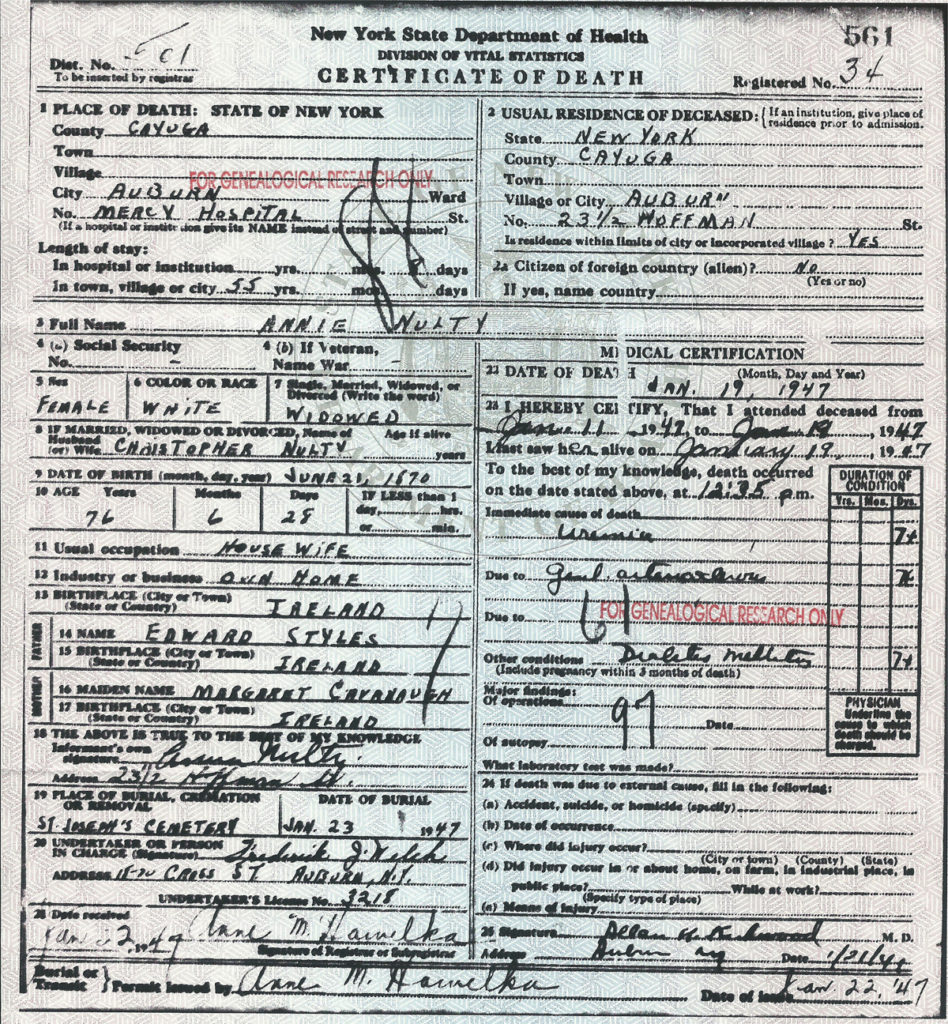 New York State Department of Health
561
DIVISION OF VITAL STATISTICS
Dist. No. 501
To be inserted by registrar
CERTIFICATE OF DEATH
Registered No. 34
1 PLACE OF DEATH: STATE OF NEW YORK
County CAYUGA
Town
Village
FOR GENEALOGICAL RESEARCH ONLY
City AUBURN Ward
No. MERCY HOSPITAL St.
(If a hospital or institution give its NAME instead of street and number)
Length of stay:
In hospital or institution yrs. mos. 8 days
In town, village or city 55 yrs. mos. days
2 USUAL RESIDENCE OF DECEASED: {If an institution, give place of residence prior to admission.
State NEW YORK
County CAYUGA
Town
Village or City AUBURN
No. 23 1/2 HOFFMAN St.
Is residence within limits of city or incorporated village? YES
Citizen of foreign country (alien)? NO
(Yes or no)
If yes, name country
3 Full Name ANNIE NULTY
4 (a) Social Security No. -
4 (b) If Veteran, Name War -
5 Sex FEMALE
6 COLOR OR RACE WHITE
7 Single, Married, Widowed, or Divorced (Write the word) WIDOWED
8 IF MARRIED, WIDOWED OR DIVORCED, Name of Husband (or) Wife CHRISTOPHER NULTY Age if alive years
9 DATE OF BIRTH (month, day, year) JUNE 21, 1870
10 AGE Years Months Days IF LESS than 1 day, hrs. or min.
76 6 28
11 Usual occupation HOUSE WIFE
12 Industry or business OWN HOME
13 BIRTHPLACE (City or Town) (State or Country) IRELAND
FATHER
14 NAME EDWARD STYLES
15 BIRTHPLACE (City or Town) (State or Country) IRELAND
MOTHER
16 MAIDEN NAME MARGARET CAVANAUGH
17 BIRTHPLACE (City or Town) (State or Country) IRELAND
18 THE ABOVE IS TRUE TO THE BEST OF MY KNOWLEDGE
Informant's own signature Nulty
Address 23 1/2 Hoffman St.
19 PLACE OF BURIAL, CREMATION OR REMOVAL DATE OF BURIAL
ST. JOSEPH'S CEMETERY JAN. 23 1947
20 UNDERTAKER OR PERSON IN CHARGE (Signature) Frederick J. Welch
ADDRESS 18-20 CROSS ST AUBURN, N.Y.
UNDERTAKER'S License No. 3218
21 Date received
Jan 22, 1947 Anne M. Hawelka
Signature of Registrar or Subregistrar
MEDICAL CERTIFICATION
22 DATE OF DEATH (Month, Day and Year)
JAN. 19, 1947
23 I HEREBY CERTIFY, That I attended deceased from
Jan 11 1947, to Jan 19, 1947
I last saw her alive on January 19, 1947
To the best of my knowledge, death occurred
on the date stated above, at 12:35 p.m.
DURATION OF CONDITION
Yrs. Mos. Dys.
Immediate cause of death
Uremia 7+
Due to Genl. arteriosclerosis
Due to
61
FOR GENEALOGICAL RESEARCH ONLY
Other conditions Diabetes mellitus 7+
(Include pregnancy within 3 months of death)
Major findings:
Of operations
97
Date
Of autopsy
What laboratory test was made?
PHYSICIAN
Underline the cause to which death should be charged.
24 If death was due to external cause, fill in the following:
(a) Accident, suicide, or homicide (specify)
(b) Date of occurrence
(c) Where did injury occur?
(City or town) (County) (State)
(d) Did injury occur in or about home, on farm, in industrial place, in
public place? While at work?
(Specify type of place)
(e) Means of injury
25 Signature M.D.
Address Auburn NY Date 1/21/47
Burial or Transit } Permit issued by Anne M. Hawelka Date of issue Jan 22, '47